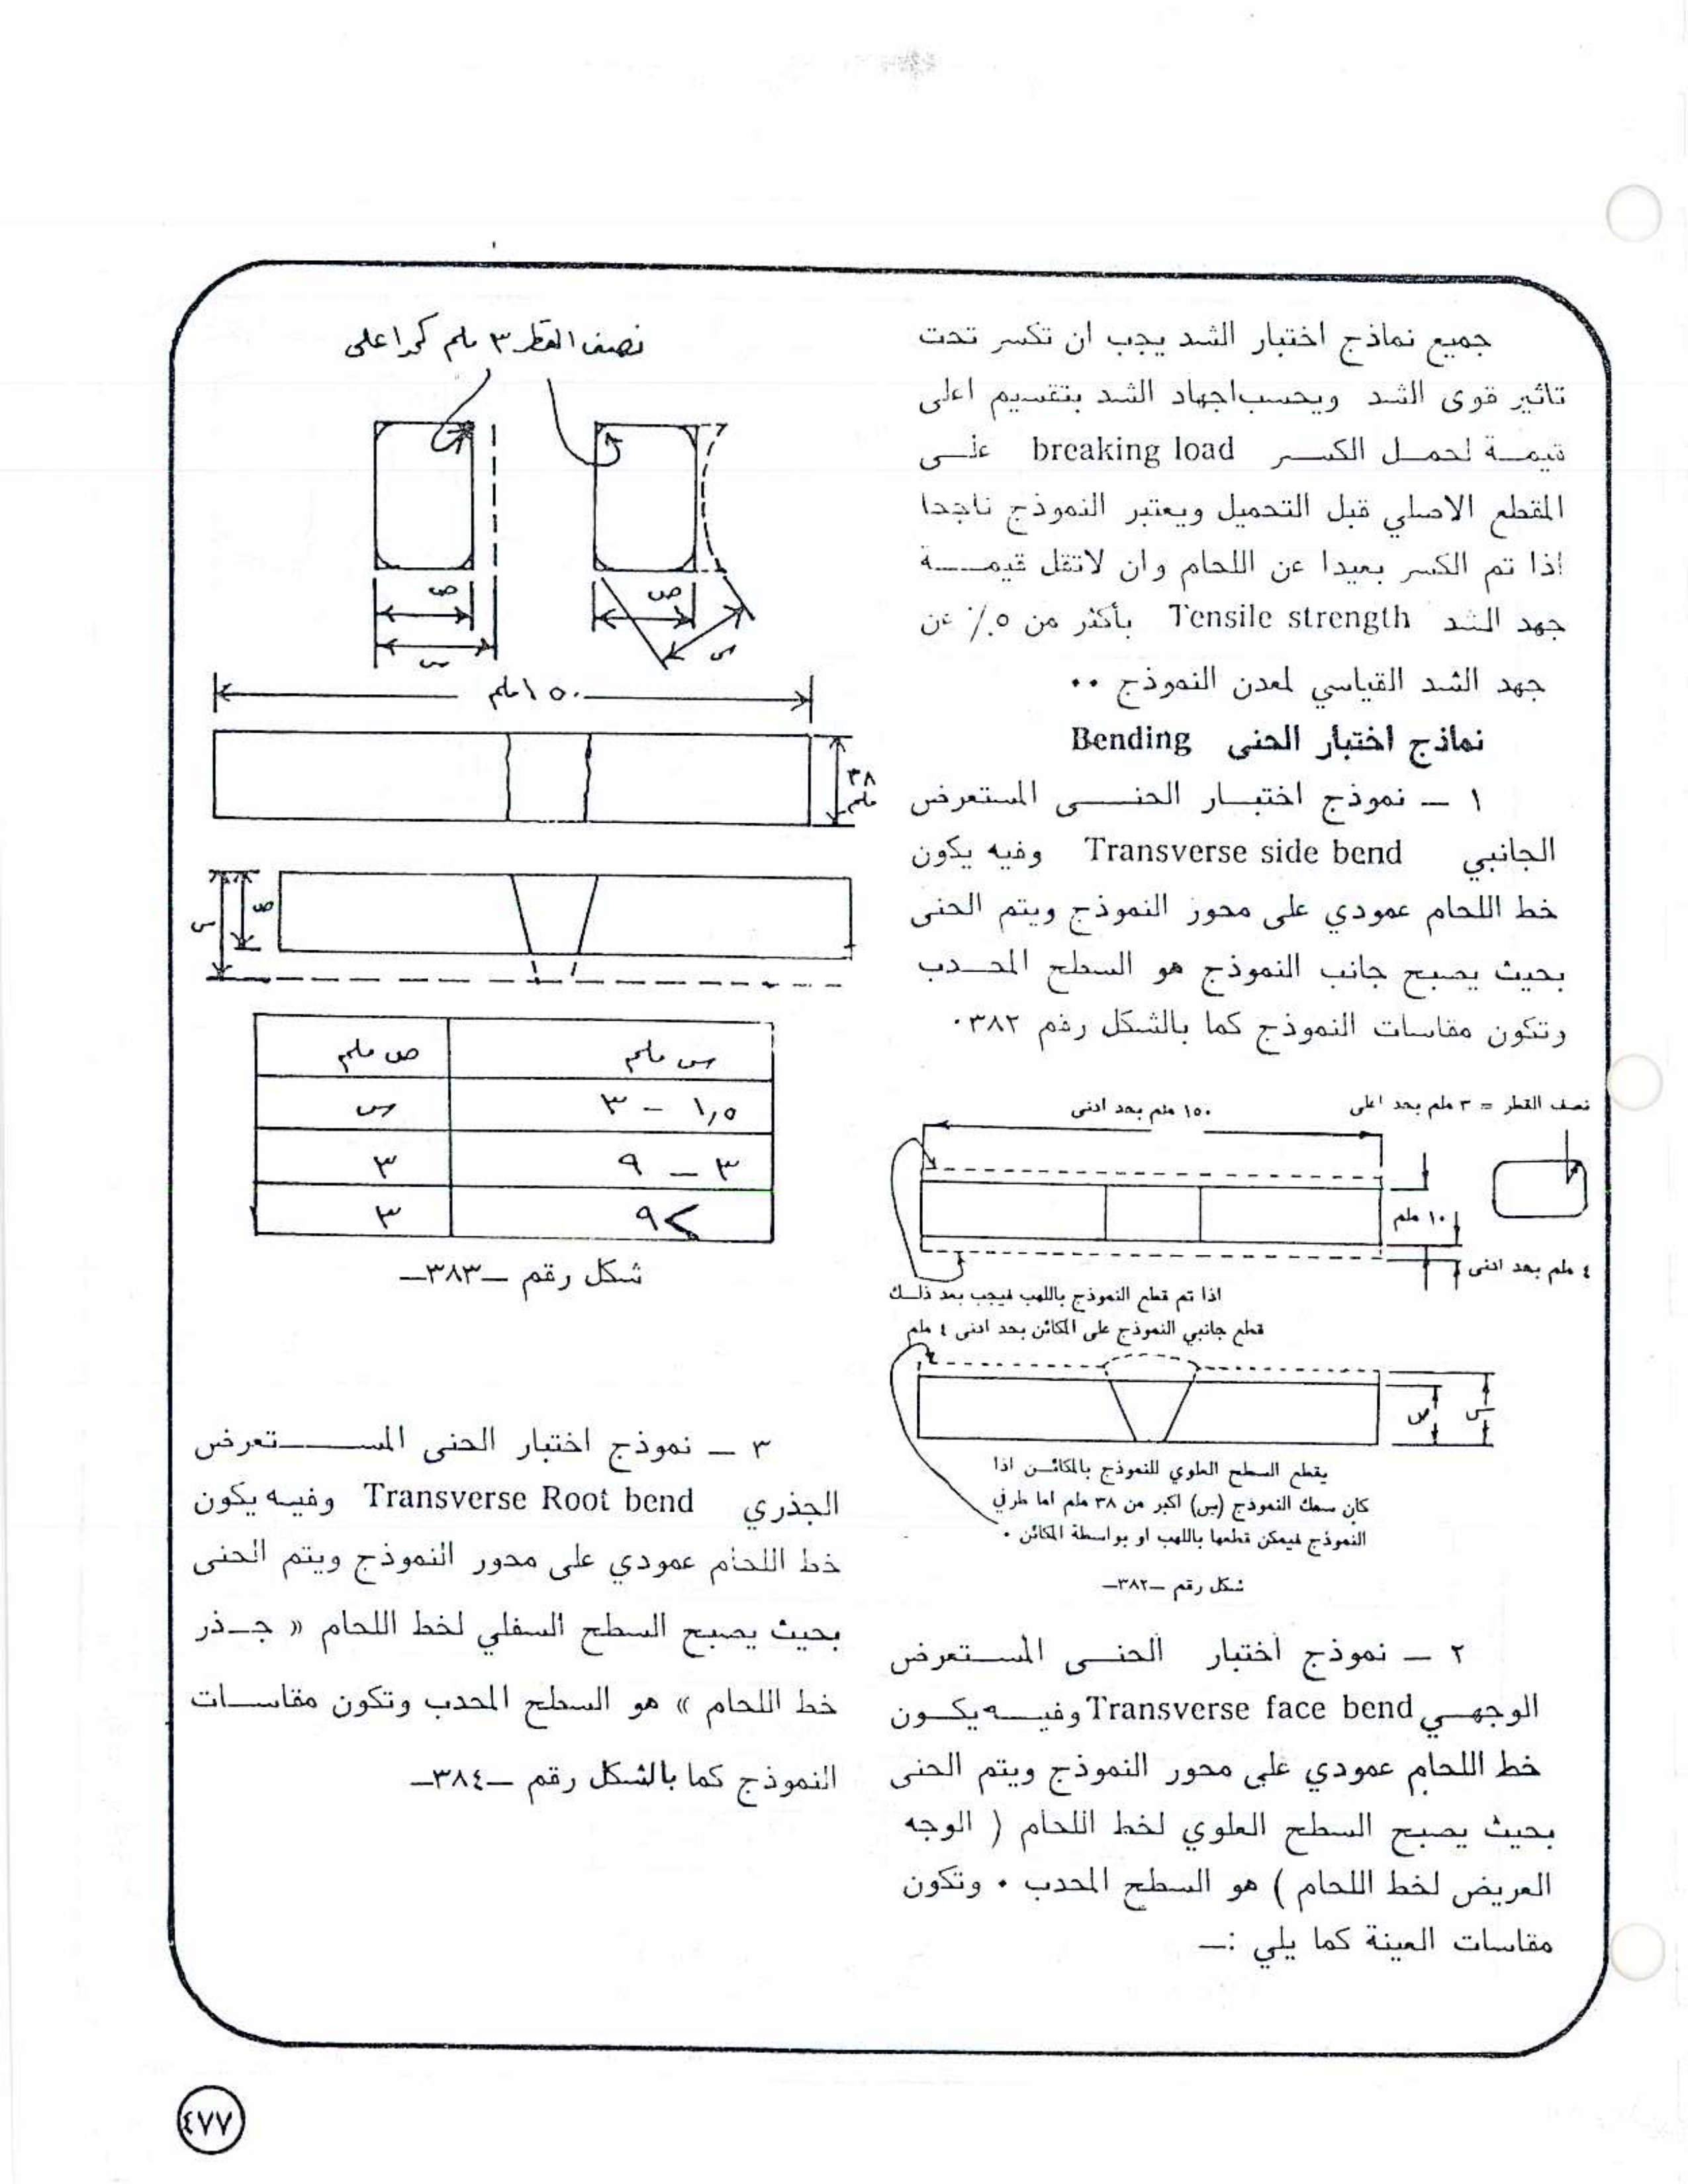 جميع نماذج اختبار الشد يجب ان تكسر تحت
تاثير قوى الشد ويحسب اجهاد الشد بتقسيم اعلى
قيمة لحمل الكسر breaking load على
المقطع الاصلي قبل التحميل ويعتبر النموذج ناجحا
اذا تم الكسر بعيدا عن اللحام وان لاتقل قيمة
جهد الشد Tensile strength بأكثر من ٥٪ عن
جهد الشد القياسي لمعدن النموذج ..
نماذج اختبار الحنى Bending
١ – نموذج اختبار الحنى المستعرض
الجانبي Transverse side bend وفيه يكون
خط اللحام عمودي على محور النموذج ويتم الحنى
بحيث يصبح جانب النموذج هو السطح المحدب
وتكون مقاسات النموذج كما بالشكل رقم ٣٨٢.
نصف القطر = ٣ ملم بحد اعلى
١٥٠ ملم بحد ادنى
١٠ ملم
٤ ملم بحد ادنى
اذا تم قطع النموذج باللهب فيجب بعد ذلك
قطع جانبي النموذج على المكائن بحد ادنى ٤ ملم
ص
س
يقطع السطح العلوي للنموذج بالمكائن اذا
كان سمك النموذج (س) اكبر من ٣٨ ملم اما طرفي
النموذج فيمكن قطعها باللهب او بواسطة المكائن .
شكل رقم –٣٨٢–
٢ – نموذج اختبار الحنى المستعرض
الوجهي Transverse face bend وفيه يكون
خط اللحام عمودي على محور النموذج ويتم الحنى
بحيث يصبح السطح العلوي لخط اللحام ( الوجه
العريض لخط اللحام ) هو السطح المحدب . وتكون
مقاسات العينة كما يلي :–
نصف القطر ٣ ملم كحد اعلى
ص
س
ص
س
١٥٠ ملم
٣٨
ملم
ص
س
س ملم ص ملم
١,٥ – ٣ س
٣ – ٩ ٣
>٩ ٣
شكل رقم –٣٨٣–
٣ – نموذج اختبار الحنى المستعرض
الجذري Transverse Root bend وفيه يكون
خط اللحام عمودي على محور النموذج ويتم الحنى
بحيث يصبح السطح السفلي لخط اللحام « جذر
خط اللحام » هو السطح المحدب وتكون مقاسات
النموذج كما بالشكل رقم –٣٨٤–
٤٧٧